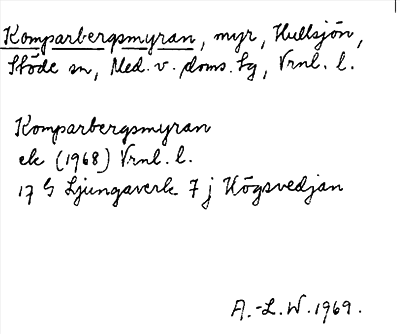 Komparbergsmyran, myr, Hullsjön,
Stöde sn, Med. v. doms. tg, Vrnl. l.
Komparbergsmyran
ek (1968) Vrnl. l.
17 G Ljungaverk 7 j Högsvedjan
A.-L. W. 1969.